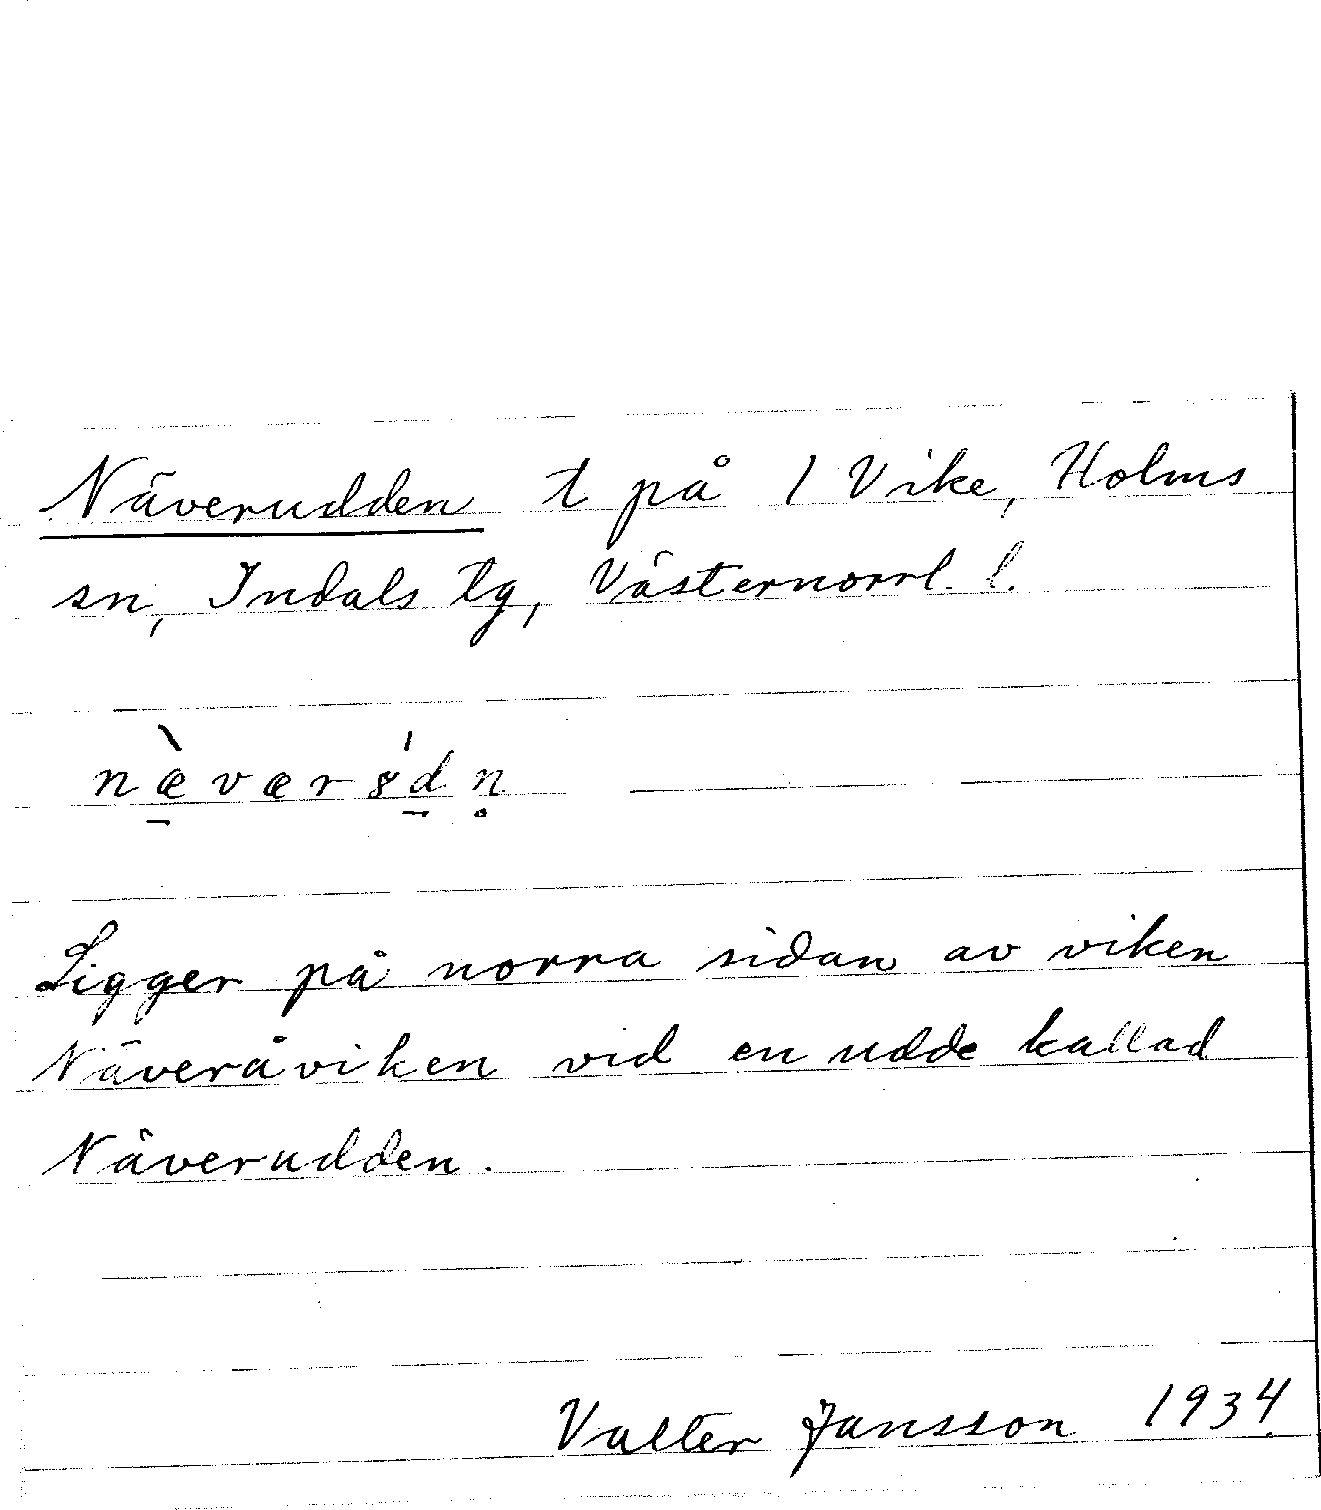 Näverudden t på 1 Vike, Holms
sn, Indals tg, Västernorrl. l.
næ̀værs̍dn̥
Ligger på norra sidan av viken
Näveråviken vid en udde kallad
Näverudden.
Valter Jansson 1934